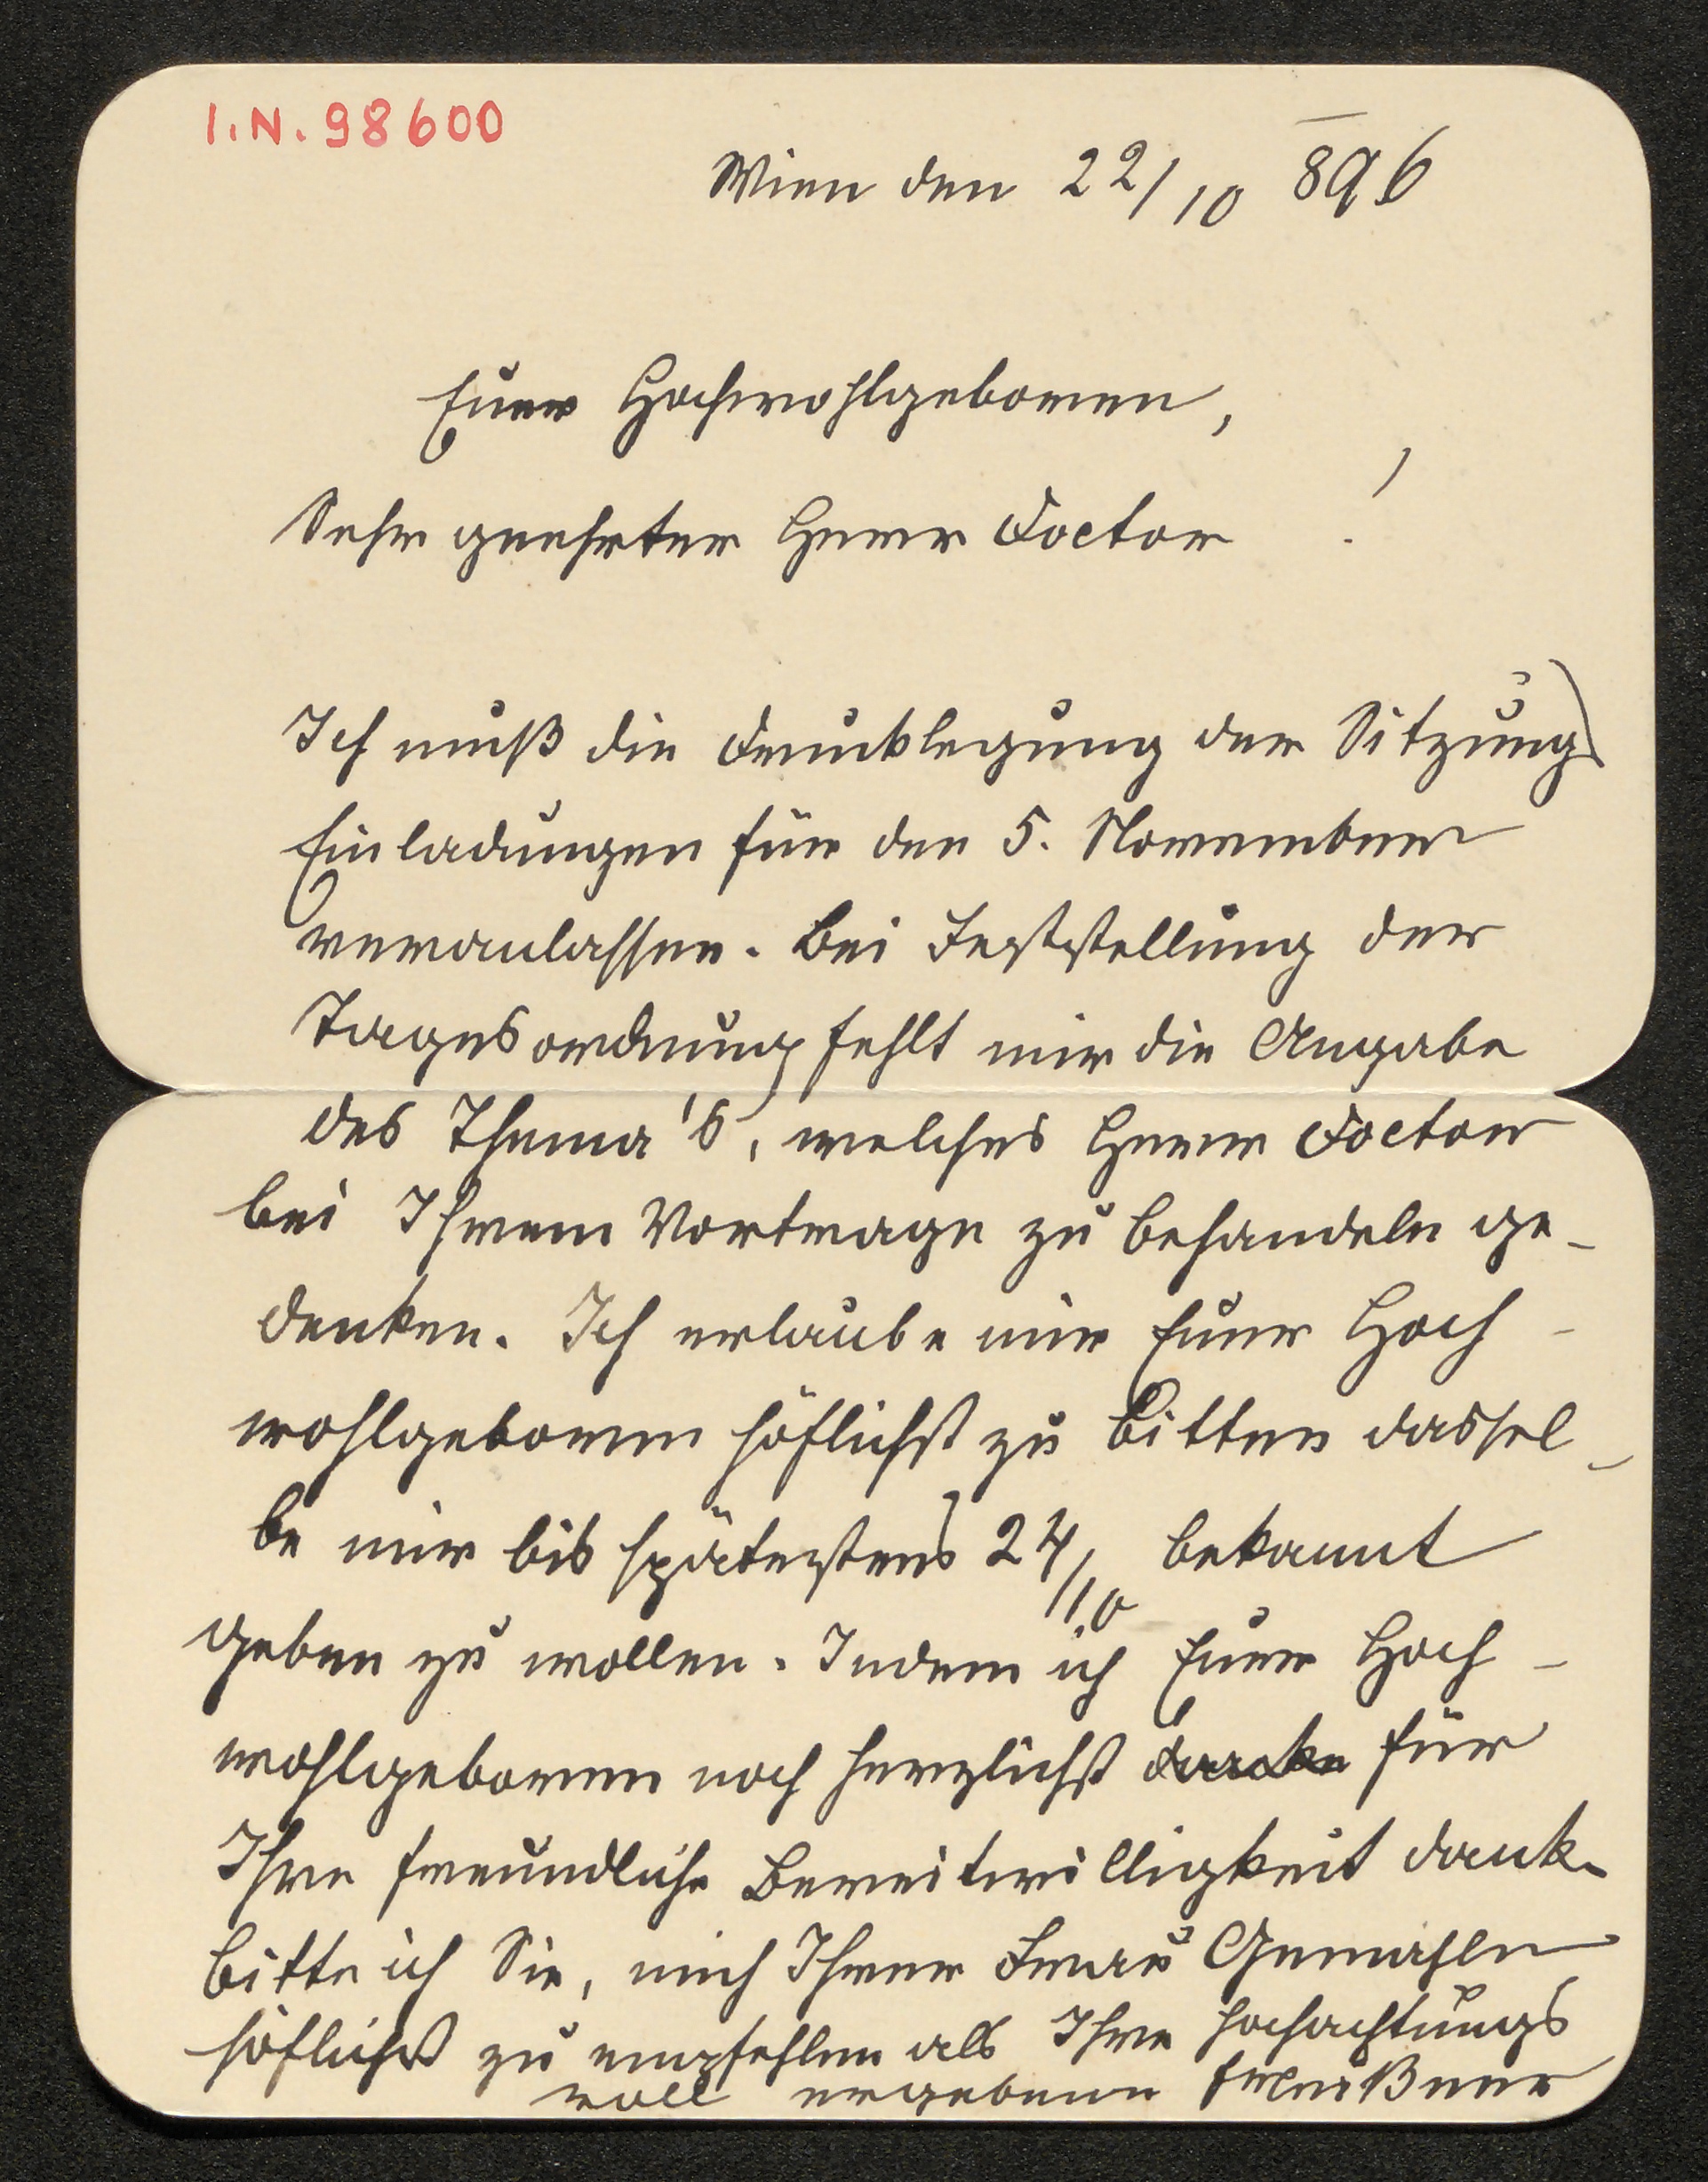 I.N. 98600
Wien den 22/10 896
Euer Hochwohlgeboren,
Sehr geehrter Herr Doctor!
Ich muß die Drucklegung der Sitzungs
Einladungen für den 5. November
veranlassen. Bei Feststellung der
Tagesordnung fehlt mir die Angabe
des Thema's, welches Herr Doctor
bei Ihrem Vortrage zu behandeln ge-
denken. Ich erlaube mir Euer Hoch-
wohlgeboren höflichst zu bitten dassel-
be mir bis spätestens 24/10 bekannt
geben zu wollen. Indem ich Euer Hoch-
wohlgeboren noch herzlichst danke für
Ihre freundliche Bereitwilligkeit danke
bitte ich Sie, mich Ihrer Frau Gemahlin
höflichst zu empfehlen als Ihre hochachtungs
voll ergebene